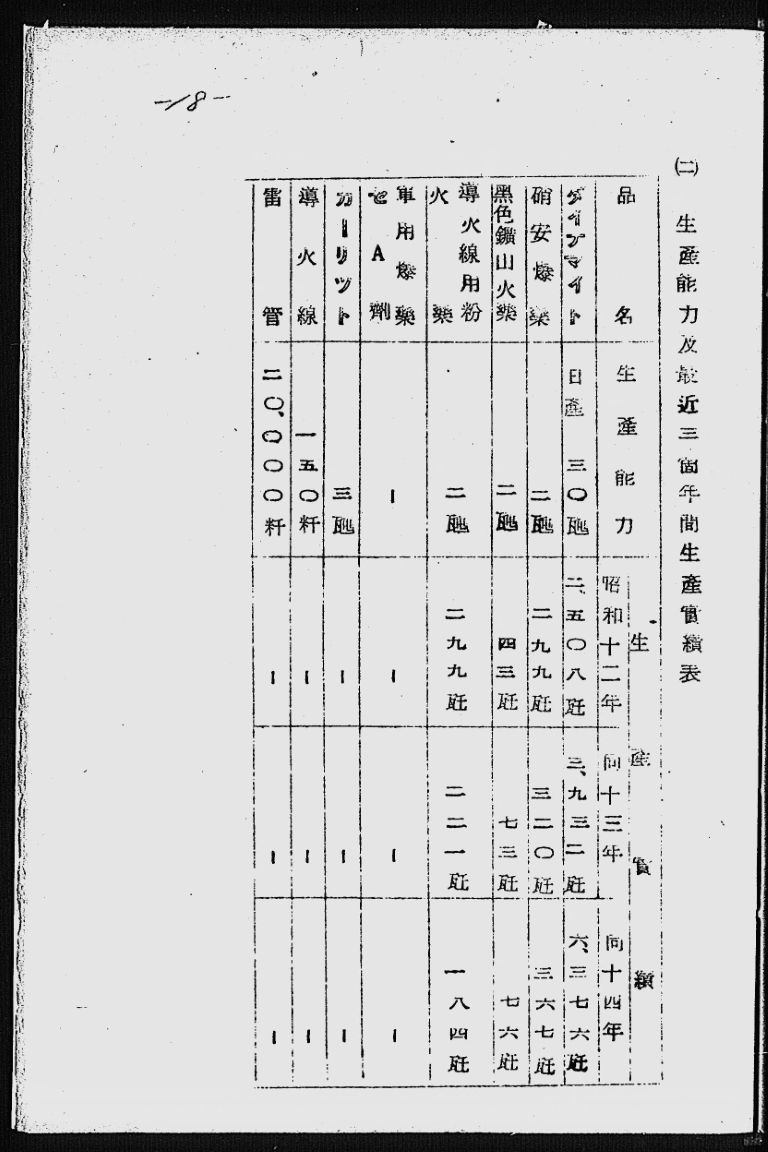 -18-
㈡ 生產能力及最近三箇年間生產實績表
生產實績
品名 生產能力 昭和十二年 同十三年 同十四年
ダイナマイト 日產 三〇瓲 二、五〇八瓩 三、九三二瓩 六、三七六瓩
硝安爆藥 二瓲 二九九瓩 三二〇瓩 三六七瓩
黑色鑛山火藥 二瓲 四三瓩 七三瓩 七六瓩
導火線用粉
火藥 二瓲 二九九瓩 二二一瓩 一八四瓩
軍用爆藥
セA劑 ー ー ー ー
カーリット 三瓲 ー ー ー
導火線 一五〇粁 ー ー ー
雷管 二〇、〇〇〇粁 ー ー ー